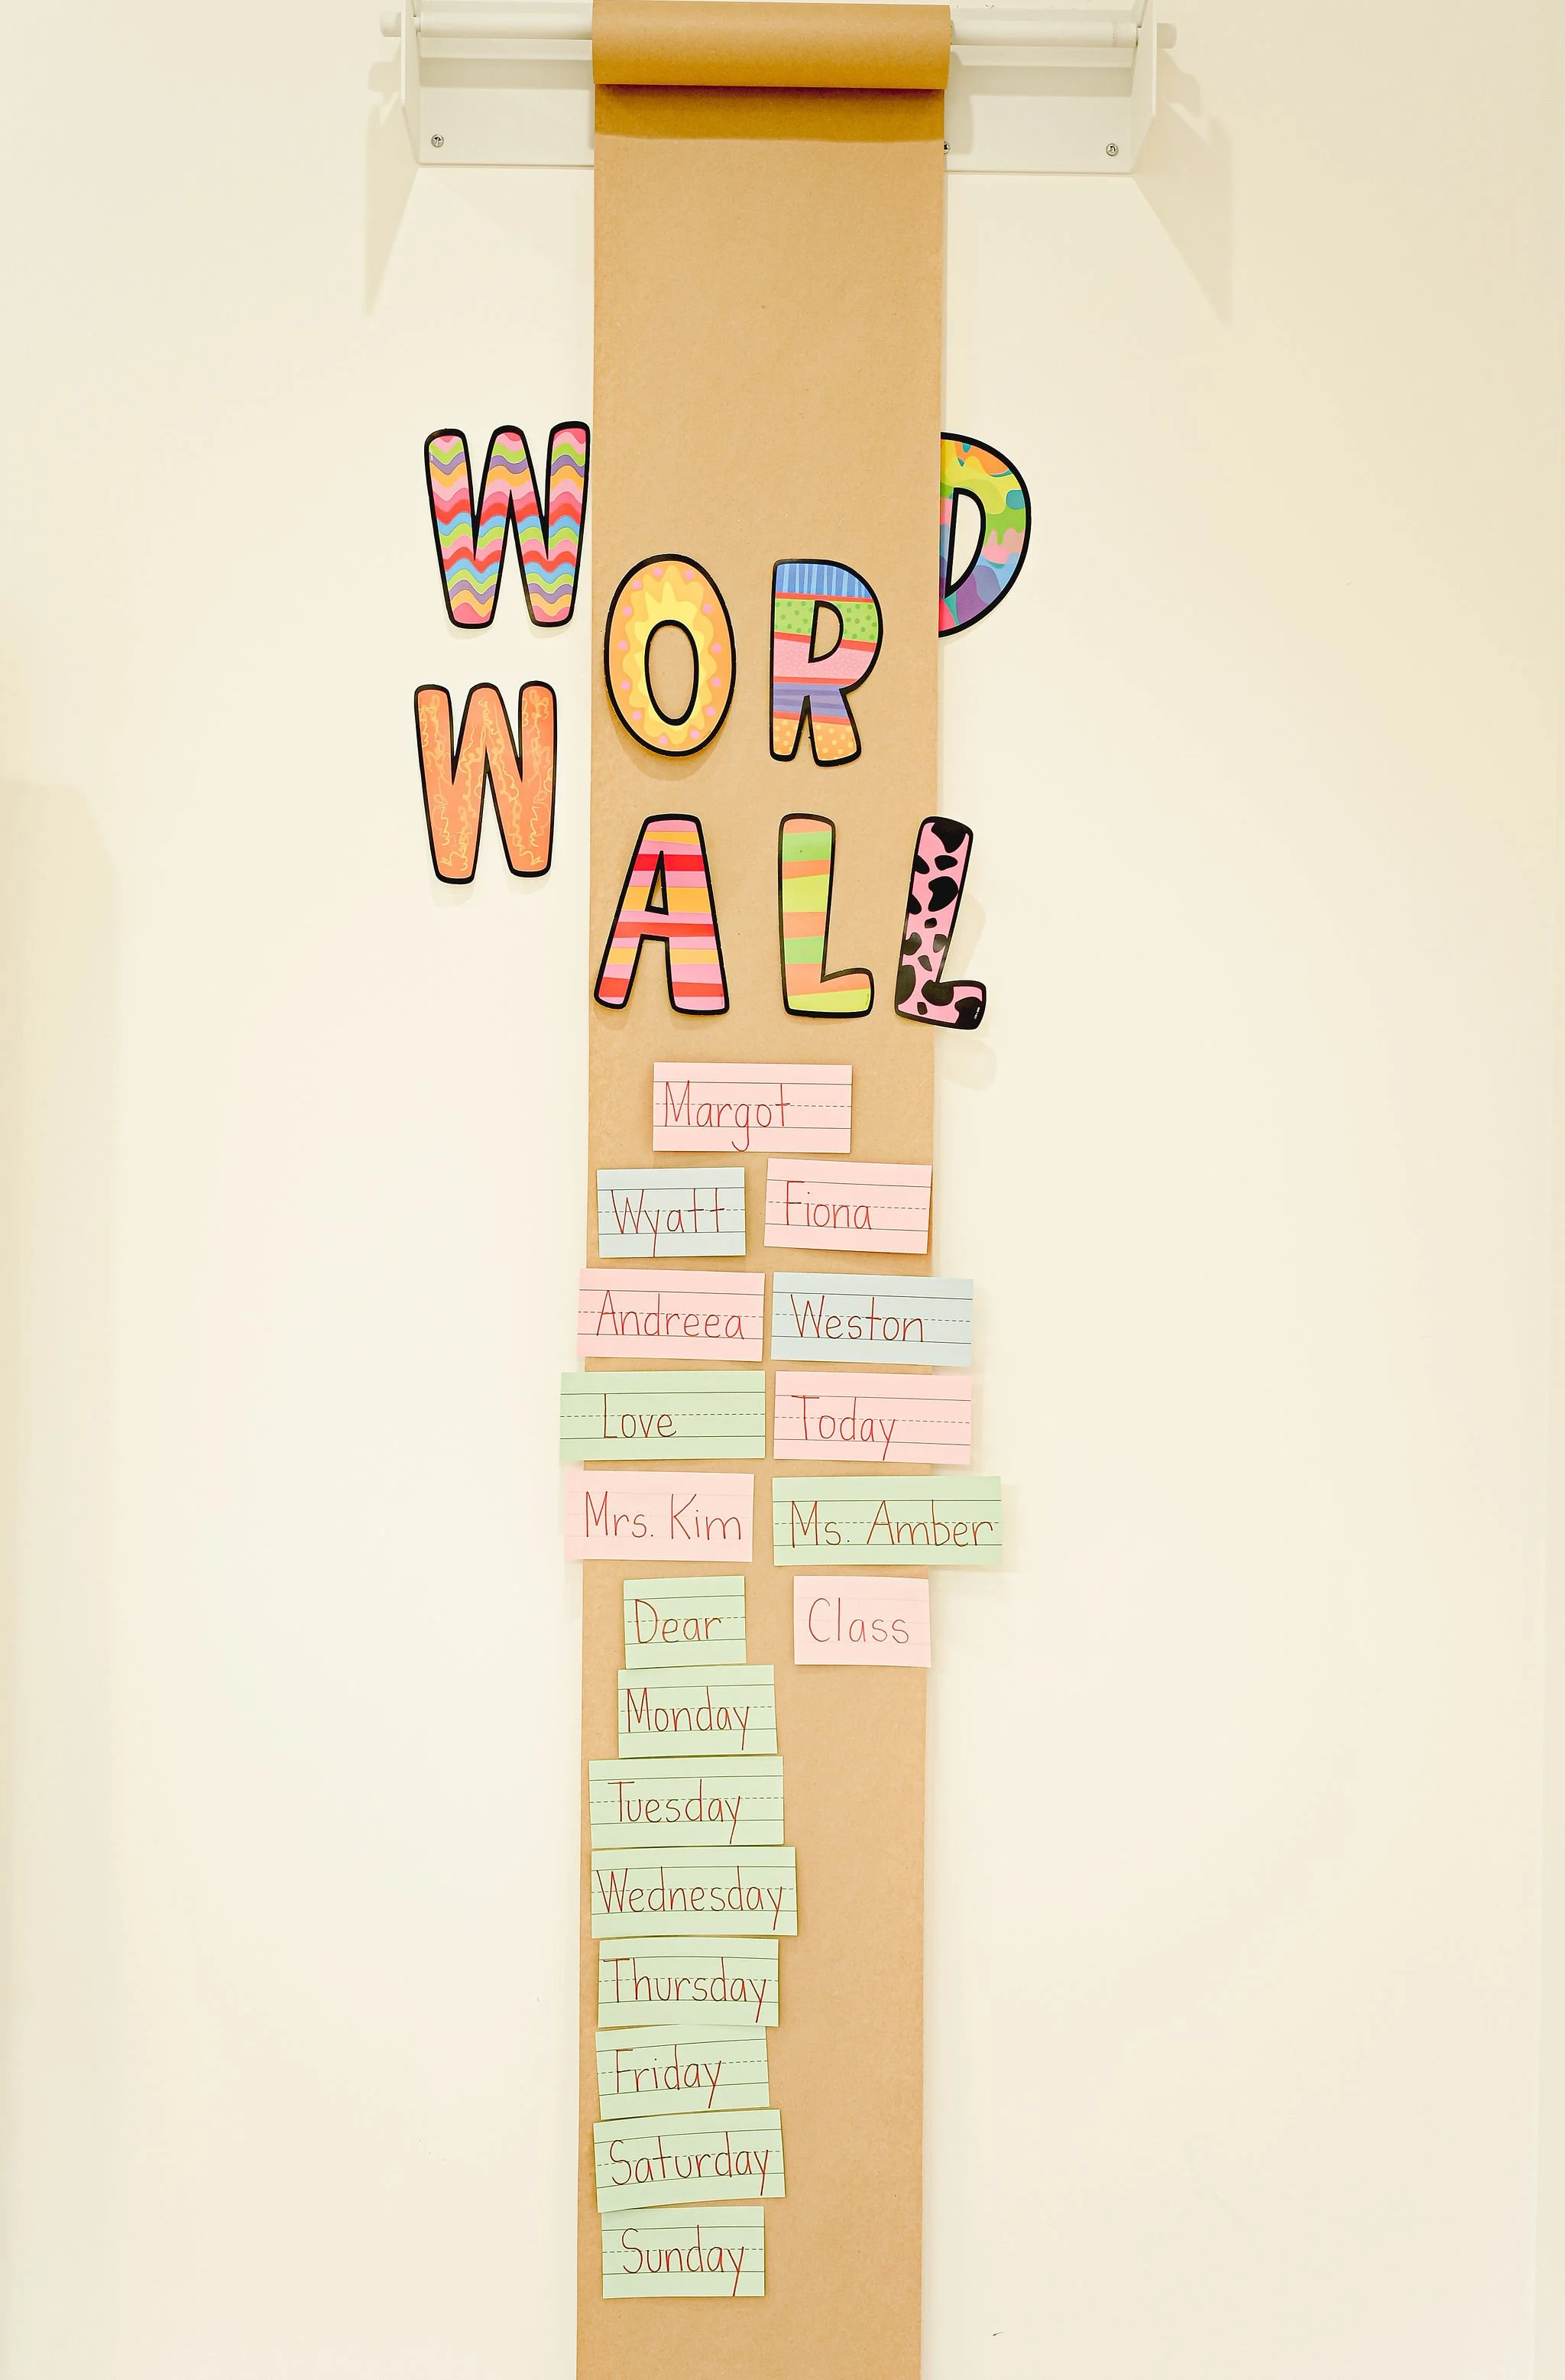 WORD
WALL
Margot
Wyatt Fiona
Andreea Weston
Love Today
Mrs. Kim Ms. Amber
Dear Class
Monday
Tuesday
Wednesday
Thursday
Friday
Saturday
Sunday